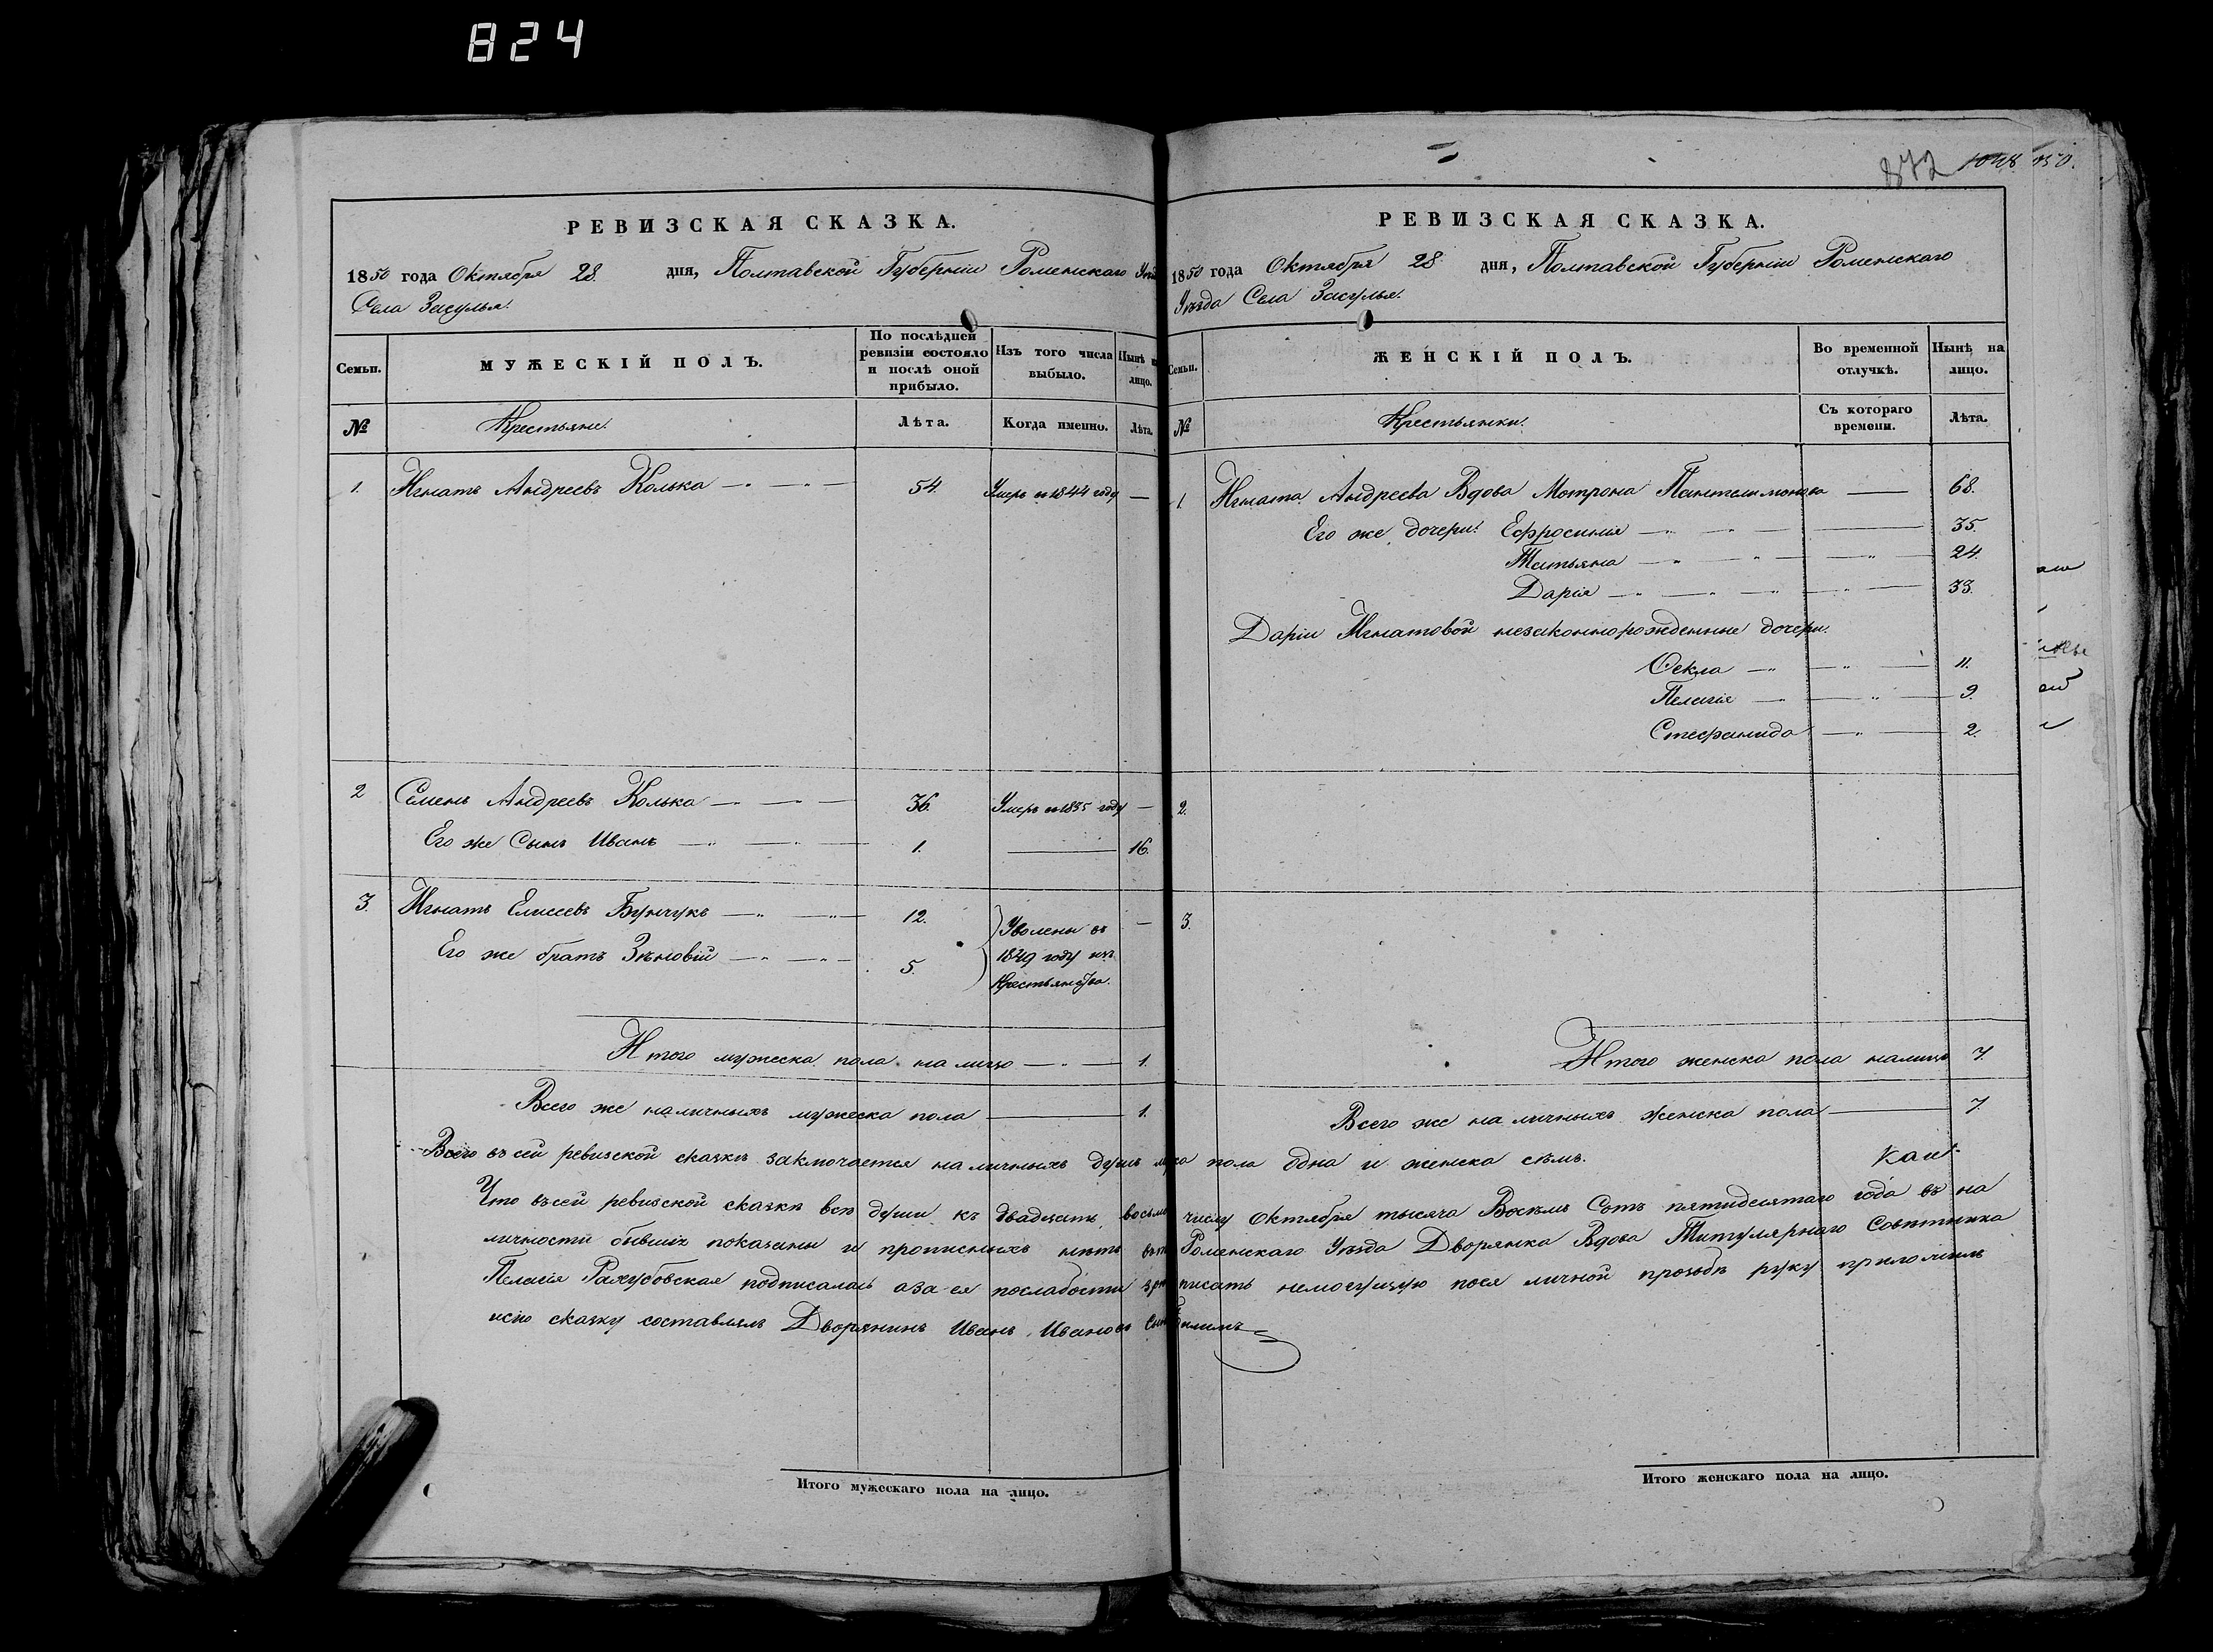 824
872
РЕВИЗСКАЯ СКАЗКА.
1850 года Октября 28. дня, Полтавской Губерніи Роменскаго
Села Засулья.
Семьи. МУЖЕСКІЙ ПОЛЪ. По послѣдней ревизіи состояло и послѣ оной прибыло. Изъ того числа выбыло. Нынѣ на лицо.
№ Крестьяне. Лѣта. Когда именно. Лѣта.
1. Игнатъ Андреевъ Колька 54. Умеръ въ 1844 году —
2 Семенъ Андреевъ Колька 36. Умеръ въ 1835 году —
Его же Сынъ Иванъ 1. — 16.
3. Игнатъ Елисеевъ Бунчукъ 12. Уволены въ —
Его же братъ Зѣновій 5. 1849 году изъ
Крестьянства.
Итого мужеска пола на лицо 1.
Всего же наличныхъ мужеска пола 1.
РЕВИЗСКАЯ СКАЗКА.
1850 года Октября 28 дня, Полтавской Губерніи Роменскаго
Уѣзда Села Засулья.
Семьи. ЖЕНСКІЙ ПОЛЪ. Во временной отлучкѣ. Нынѣ на лицо.
№ Крестьянки. Съ котораго времени. Лѣта.
1. Игната Андреева Вдова Мотрона Пантелимонова — 68.
Его же дочери: Ефросинія 35.
Татьяна 24.
Дарія 33.
Даріи Игнатовой незаконнорожденные дочери.
Ѳекла 11.
Пелагія 9.
Стефанида 2.
2.
3.
Итого женска пола налицо 7.
Всего же наличныхъ женска пола 7.
Всего въ сей ревизской сказкѣ заключается наличныхъ душъ пола одна и женска сѣмъ.
Что въ сей ревизской сказкѣ всѣ души къ двадцать восьмому числу Октября тысяча Восѣмъ Сотъ пятидесятаго года въ на
личности бывшіе показаны и прописныхъ нѣтъ въ томъ Роменскаго Уѣзда Дворянка Вдова Титулярнаго Совѣтника
Пелагія подписалась а за ея послабости писать немогущую поея личной прозьбѣ руку приложилъ
исію сказку составлялъ Дворянинъ Иванъ Ивановъ Сынъ
Итого мужескаго пола на лицо.
Итого женскаго пола на лицо.